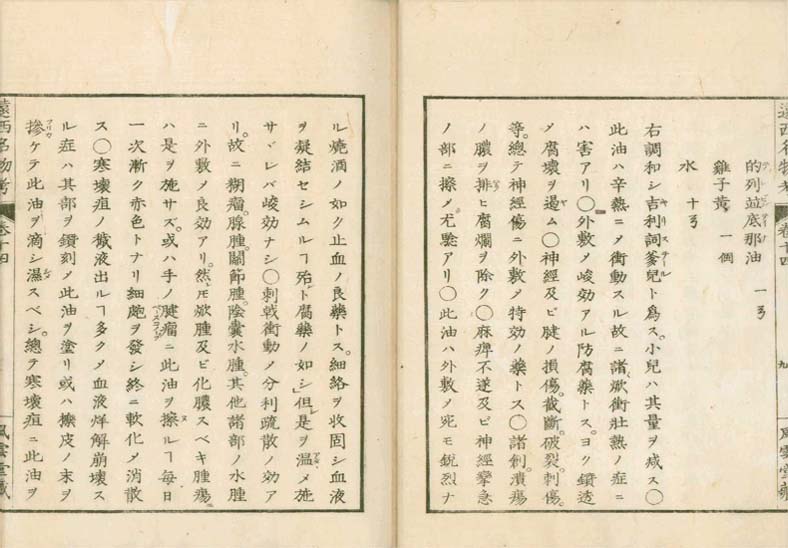 的列並底那油 一ゟ
雞子黃 一個
水 十ゟ
右調和シ吉利詞爹兒ト為ス。小兒ハ其量ヲ減ス〇
此油ハ辛熱ニメ衝動スル故ニ諸焮衝壯熱ノ症ニ
ハ害アリ〇外敷メ峻効アル防腐藥トス。ヨク鑽造
メ腐壞ヲ遏ム〇神經及ヒ腱ノ損傷。截斷。破裂。刺傷。
等。總テ神經傷ニ外敷メ特効ノ藥トス〇諸創。潰瘍
ノ膿ヲ排ヒ腐爛ヲ除ク〇麻痺不遂及ヒ神經攣急
ノ部ニ擦メ尤驗アリ〇此油ハ外敷メ死モ銳烈ナ
九
風雲堂藏
ル燒酒ノ如ク止血ノ良藥トス。細絡ヲ收固シ血液
ヲ凝結セシムルヿ殆ト腐藥ノ如シ但シ是ヲ溫メ施
サヾレバ峻効ナシ〇刺戟衝動メ分利疏散ノ効ア
リ。故ニ糊瘤。腺腫。關節腫。陰囊水腫。其他諸部ノ水腫
ニ外敷メ良効アリ。然𪜈焮腫及ビ化膿スベキ腫瘍。
ハ是ヲ施サズ。或ハ手ノ腱瘤ニ此油ヲ擦ルヿ每日
一次漸ク赤色トナリ細皰ヲ發シ終ニ軟化メ消散
ス〇寒壞疽ノ穢液出ルヿ多クメ血液烊解崩壞ス
ル症ハ其部ヲ鑽刻メ此油ヲ塗リ或ハ檪皮ノ末ヲ
摻ケテ此油ヲ滴シ濕スベシ。總テ寒壞疽ニ此油ヲ
遠西名物考 卷十四
風雲堂藏